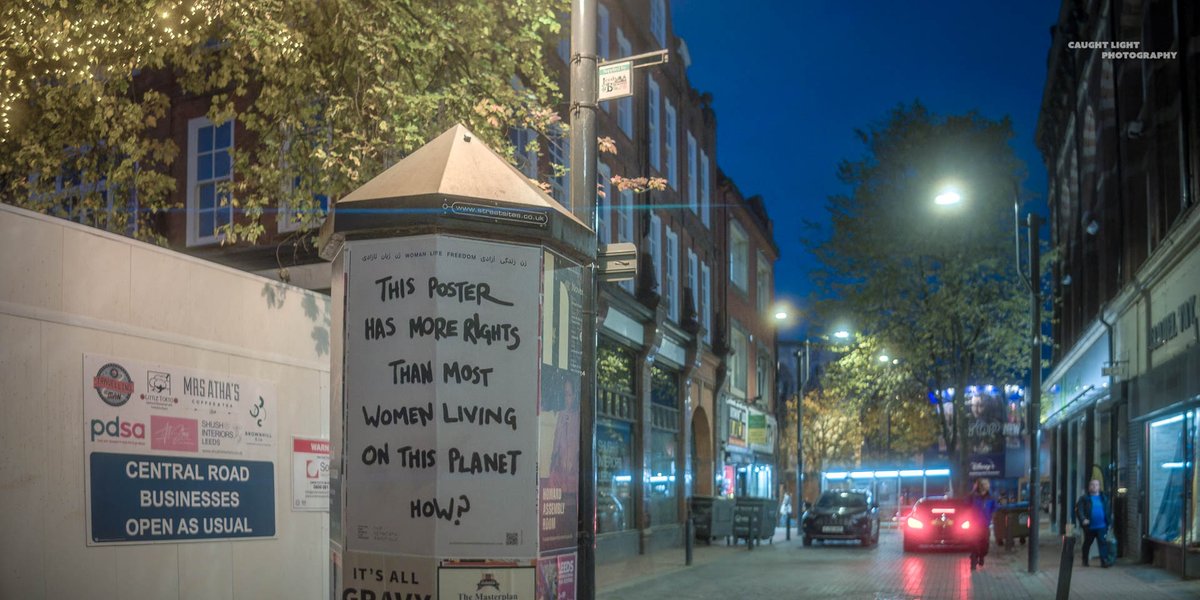 CAUGHT LIGHT
PHOTOGRAPHY
www.streetsites.co.uk
ژن ژیان ئازادی WOMAN LIFE FREEDOM زن زندگی آزادی
THIS POSTER
HAS MORE RIGHTS
THAN MOST
WOMEN LIVING
ON THIS PLANET
HOW?
IT'S ALL
GRAVY
The Masterplan
HOWARD
ASSEMBLY
ROOM
LEEDS
MRS ATHA'S
pdsa
SHUSH
INTERIORS
LEEDS
CENTRAL ROAD
BUSINESSES
OPEN AS USUAL
Disney+